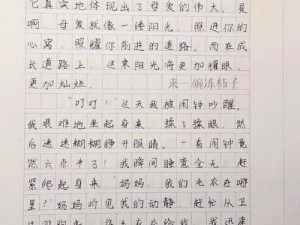 它真实地体现出了母爱的伟大。是
啊，母爱就像一缕阳光，照进你的
心窝，照耀你前进的道路。而在成
长道路上，这束阳光将更加耀眼，
更加灿烂。
来一碗冻柿子
"叮叮！"这天我被闹钟吵醒，
我艰难地坐起身来，揉了揉眼，然
后迷迷糊糊睁开眼睛。一看闹钟竟
然六点半了！我瞬间睡意全无，赶
紧爬起身来，"妈妈，我的毛衣在哪
里？"妈妈听见我的动静，赶忙从卫